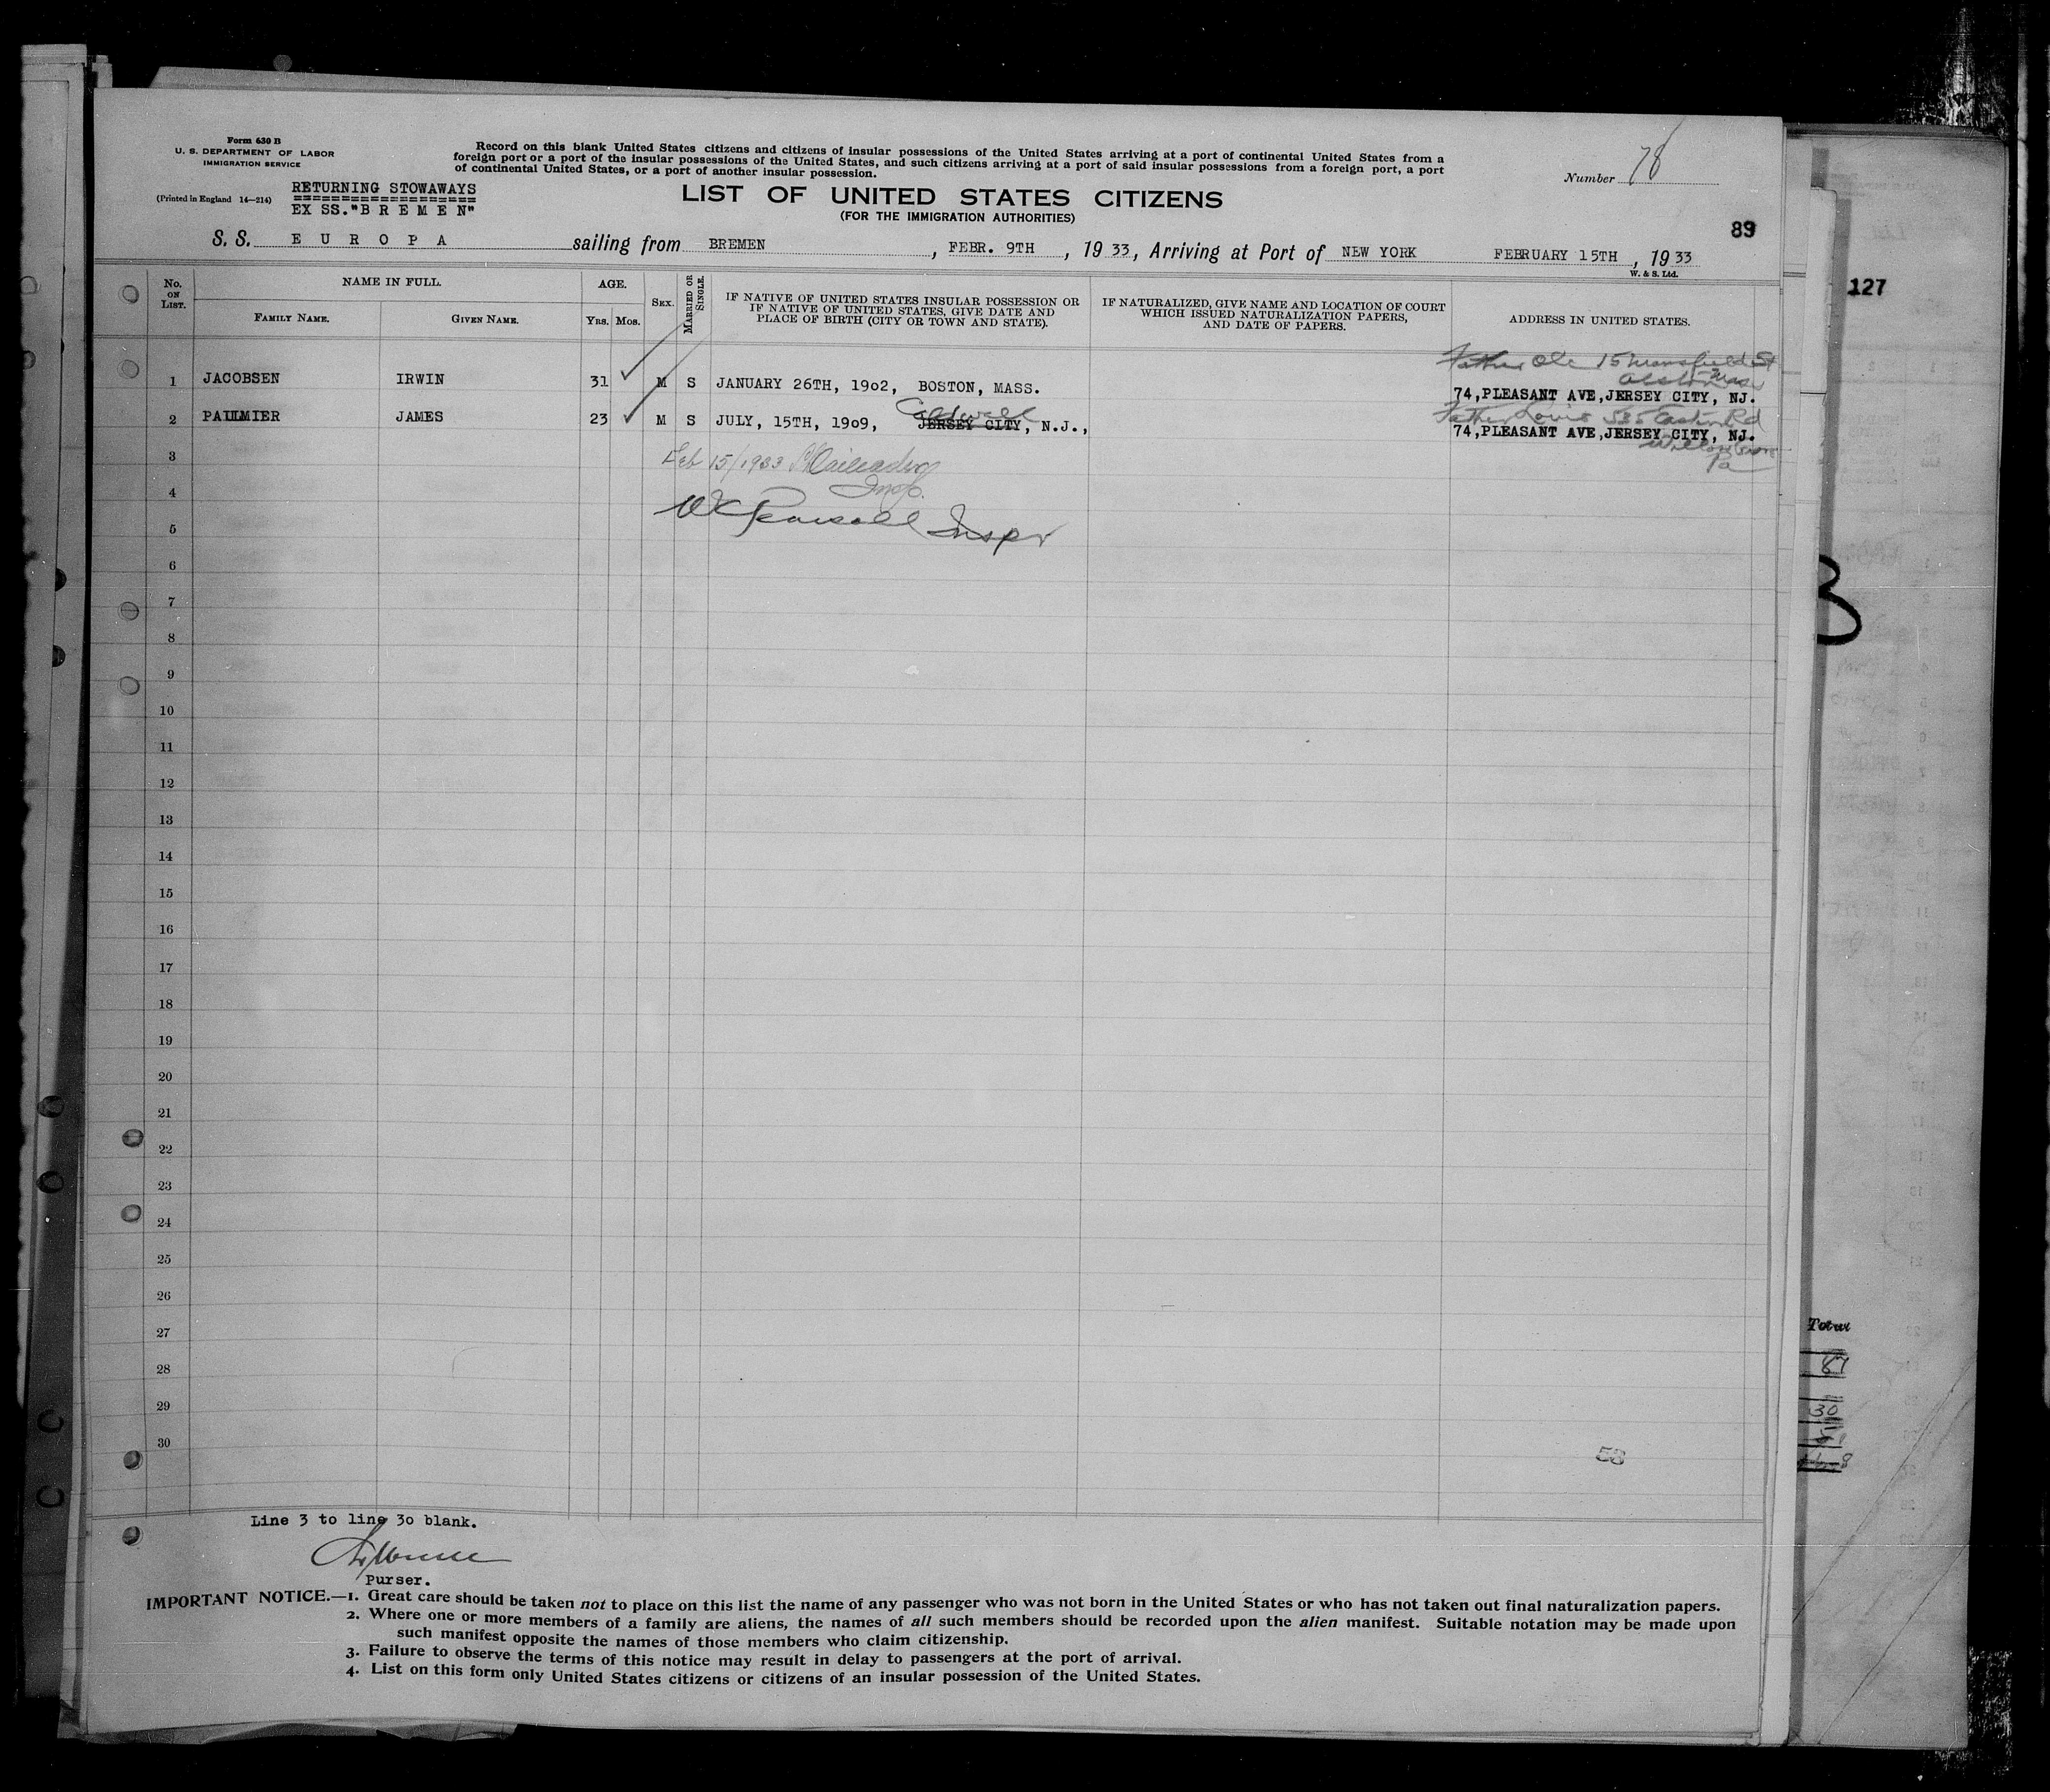 Form 630 B
U. S. DEPARTMENT OF LABOR
IMMIGRATION SERVICE
(Printed in England 14—214)
RETURNING STOWAWAYS
EX SS."B R E M E N"
Record on this blank United States citizens and citizens of insular possessions of the United States arriving at a port of continental United States from a
foreign port or a port of the insular possessions of the United States, and such citizens arriving at a port of said insular possessions from a foreign port, a port
of continental United States, or a port of another insular possession.
Number 78
LIST OF UNITED STATES CITIZENS
(FOR THE IMMIGRATION AUTHORITIES)
89
S. S. E U R O P A sailing from BREMEN, FEBR. 9TH, 1933, Arriving at Port of NEW YORK FEBRUARY 15TH, 1933
W. & S. Ltd.
No. ON LIST.
NAME IN FULL.
FAMILY NAME.
GIVEN NAME.
AGE.
YRS. MOS.
SEX.
MARRIED OR SINGLE.
IF NATIVE OF UNITED STATES INSULAR POSSESSION OR
IF NATIVE OF UNITED STATES, GIVE DATE AND
PLACE OF BIRTH (CITY OR TOWN AND STATE).
IF NATURALIZED, GIVE NAME AND LOCATION OF COURT
WHICH ISSUED NATURALIZATION PAPERS,
AND DATE OF PAPERS.
ADDRESS IN UNITED STATES.
Father Ole 15 Mansfield St
Mass
1 JACOBSEN IRWIN 31 M S JANUARY 26TH, 19o2, BOSTON, MASS. 74,PLEASANT AVE,JERSEY CITY, NJ.
Caldwell
Father Louis 535 Easton Rd
2 PAULMIER JAMES 23 M S JULY, 15TH, 19o9, JERSEY CITY, N.J., 74,PLEASANT AVE,JERSEY CITY, NJ.
Willow Grove
Pa
3 Feb 15/1933
4 Insp.
5 Inspr
6
7
8
9
10
11
12
13
14
15
16
17
18
19
20
21
22
23
24
25
26
27
28
29
30
53
Line 3 to line 3o blank.
Purser.
IMPORTANT NOTICE.—1. Great care should be taken not to place on this list the name of any passenger who was not born in the United States or who has not taken out final naturalization papers.
2. Where one or more members of a family are aliens, the names of all such members should be recorded upon the alien manifest. Suitable notation may be made upon
such manifest opposite the names of those members who claim citizenship.
3. Failure to observe the terms of this notice may result in delay to passengers at the port of arrival.
4. List on this form only United States citizens or citizens of an insular possession of the United States.
127
Total
87
30